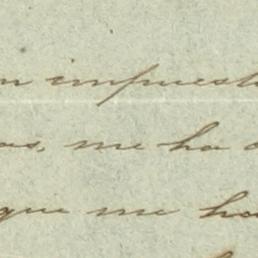 n impuest
os, me ha
que me ha